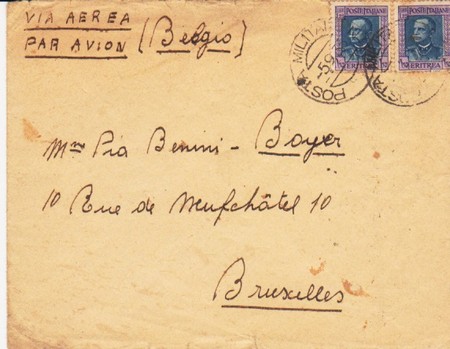 VIA AEREA
PAR AVION (Belgio)
POSTE ITALIANE
ERITREA
POSTE ITALIANE
ERITREA
POSTA MILITARE
59
POSTA
Mme Pia Benini - Boyer
10 Rue de Neufchâtel 10
Bruxelles